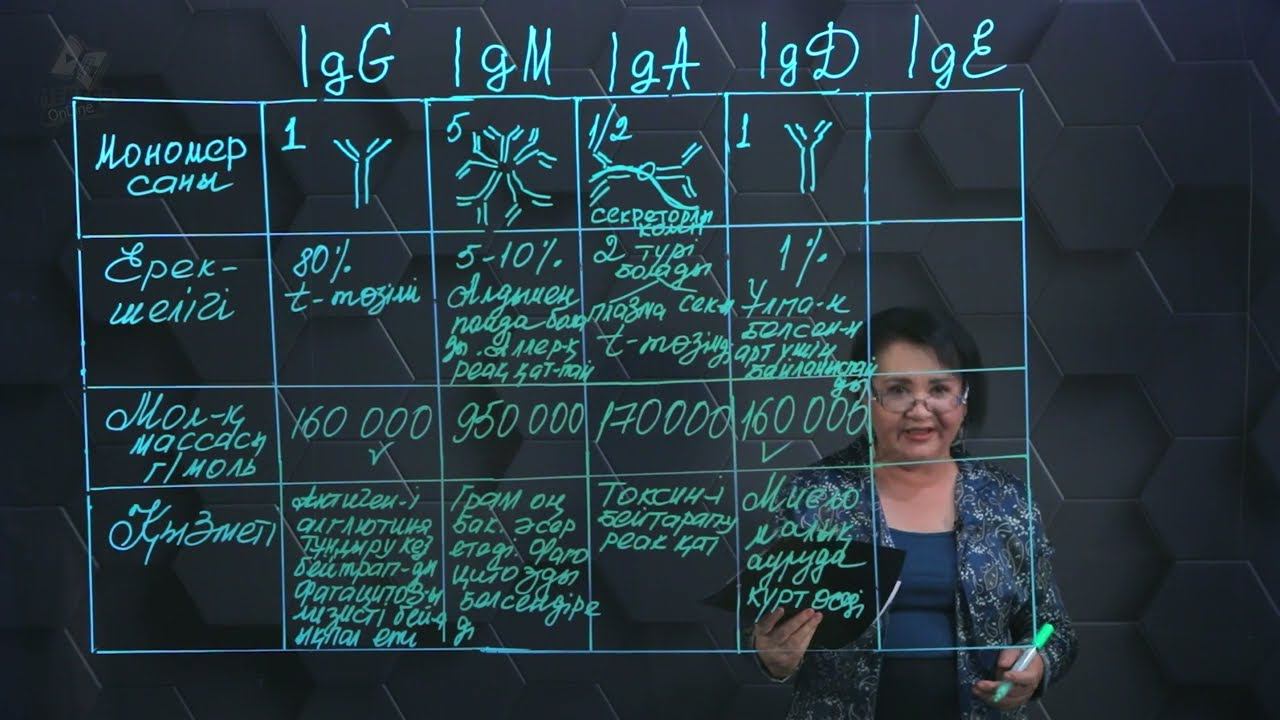 IgG IgM IgA IgD IgE
Мономер
саны
1
5
1/2
секреторлы
комп
1
Ерек-
шелігі
80%
t-төзімі
5-10%
Алдымен
пайда бола
ды. Аллерг
реак қат-пай
2 түрі
болады
плазма сек-н
t-төзімд
1%
Ұлпа-н
белсен-н
арт үшін
байланыстай
ды
Мол-қ
массасы
г/моль
160 000
950 000
170000
160 000
Қызметі
Антиген-і
агглютина
тұндыру кез
бейтрап-ды
Фагацитозы
лизисті бей-д
ықпал ету
Грам оң
бак. әсер
етеді. Фаго
цитозды
белсендіре
ді
Токсин-і
бейтарапу
реак қат
Миело
малық
ауруда
күрт өседі
Online